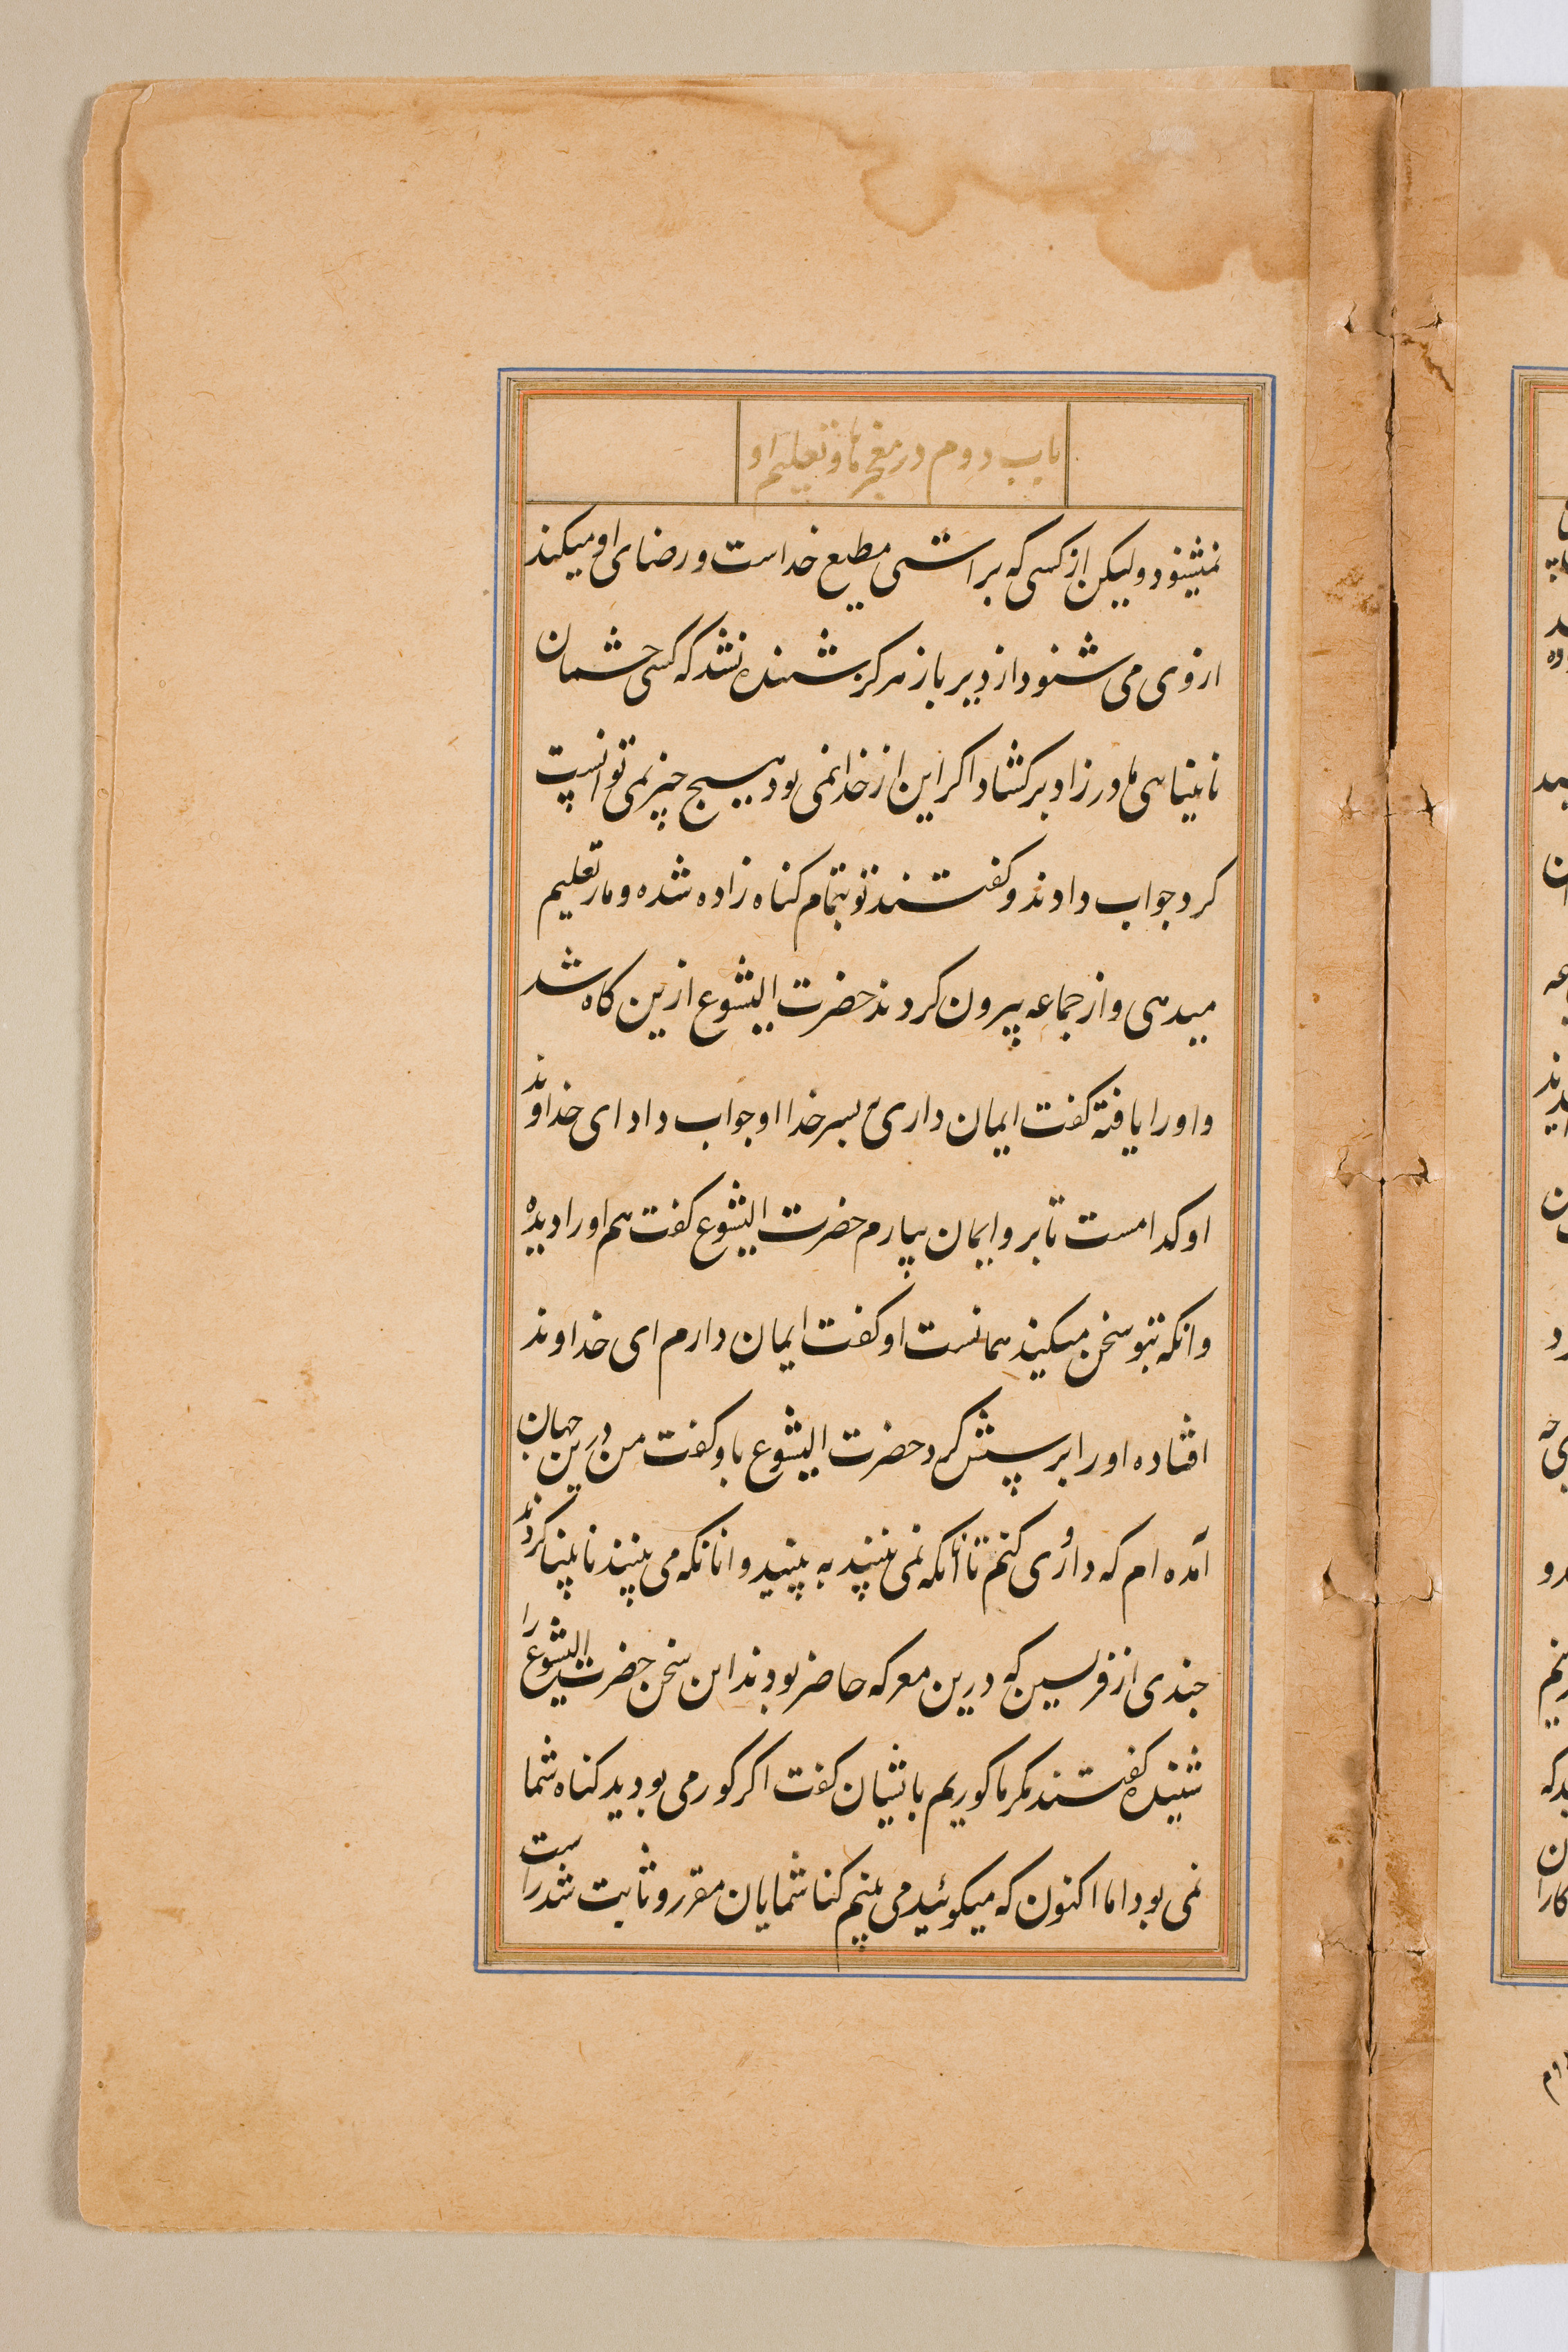 باب دوم در معجزها و تعلیم او
نمیشنود ولیکن از کسی که براستی مطیع خداست و رضای او میکند
از وی می شنود از دیر باز هرکز شنیده نشد که کسی چشمان
نابینای مادرزاد برکشاد اکر این از خدا نمی بود هیچ چیز نمی توانست
کرد جواب دادند و کفتند تو بتمام کناه زاده شده و مار تعلیم
میدهی و از جماعه بیرون کردند حضرت ایشوع ازین کاه شد
و او را یافته کفت ایمان داری به پسر خدا او جواب داد ای خداوند
او کدامست تا برو ایمان بیارم حضرت ایشوع کفت هم او را دیدهٔ
وانکه بتو سخن میکند همانست او کفت ایمان دارم ای خداوند
افتاده او را پرستش کرد حضرت ایشوع باو کفت من درین جهان
آمده ام که داوری کنم تا آنانکه نمی بینند به بینند و انانکه می بینند نابینا کردند
چندی از فریسین که درین معرکه حاضر بودند این سخن حضرت ایشوع را
شنیده کفتند مکر ما کوریم بایشان کفت اکر کور می بودید کناه شما
نمی بود اما اکنون که میکوئید می بینم کنا شمایان مقرر و ثابت شد راست